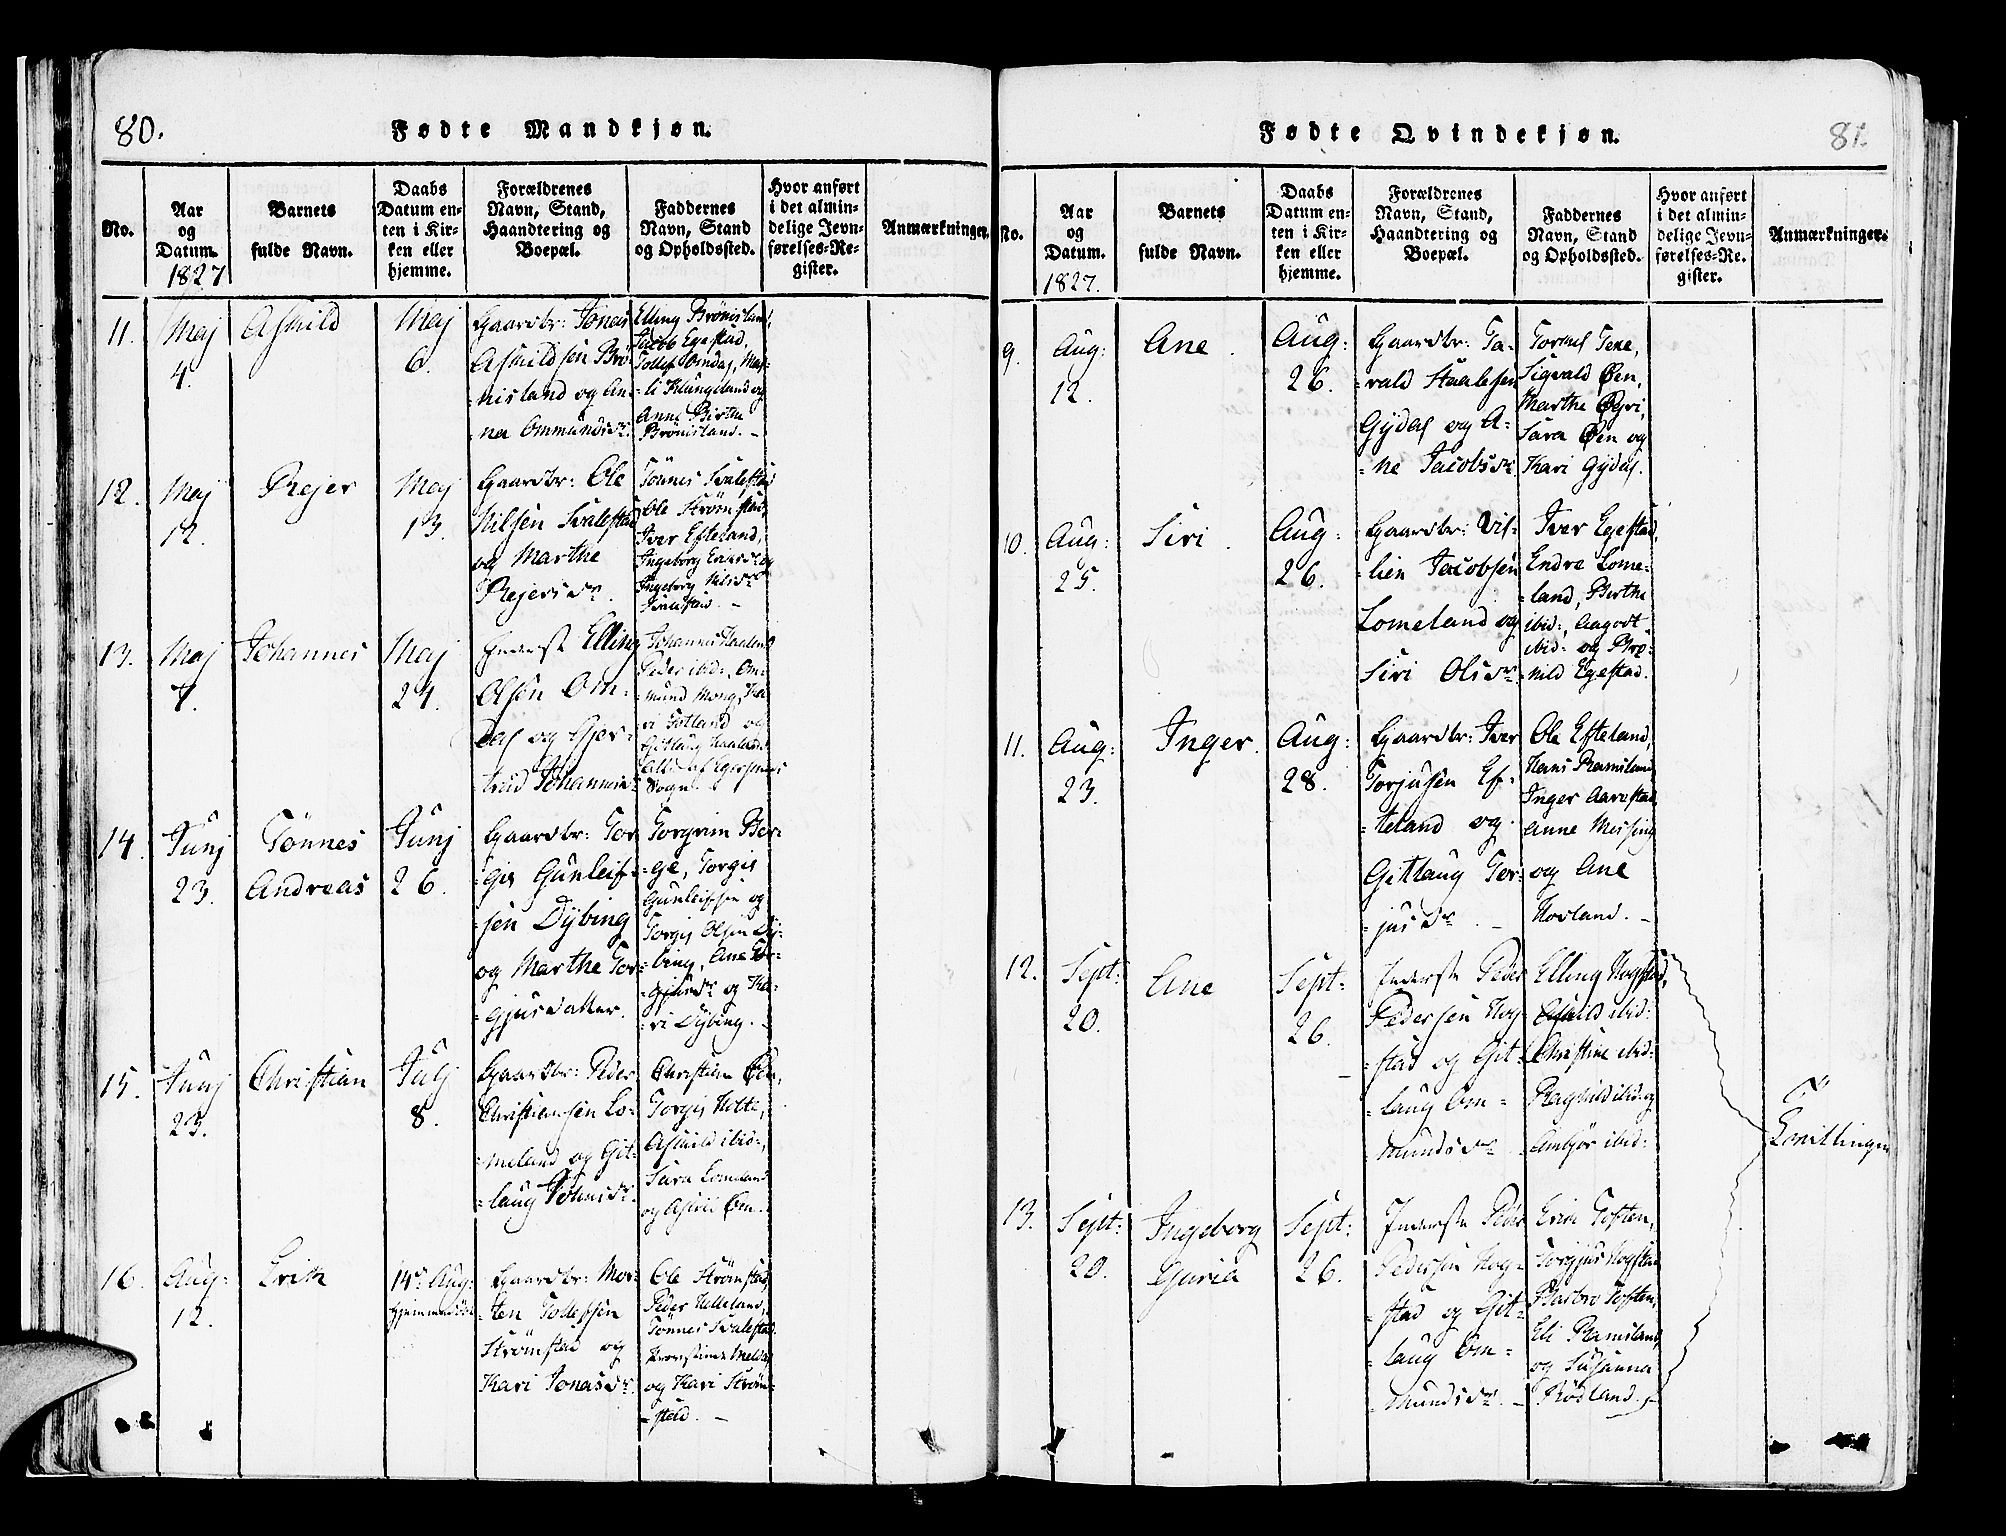 80.
Fødte Mandkjøn.
No.
Aar
og
Datum.
1827
Barnets
fulde Navn.
Daabs
Datum en-
ten i Kir-
ken eller
hjemme.
Forældrenes
Navn, Stand,
Haandtering og
Boepæl.
Faddernes
Navn, Stand
og Opholdssted.
Hvor anført
i det almin-
delige Jevn-
førelses-Re-
gister.
Anmærkninger.
11.
Maj
4.
Asmild
Maj
6.
Gaardbr: Jonas
Asmildsen Brö-
-nisland og An-
-na Ommundsdr.
Elling Brönisland,
Jacob Egestad,
Tollef Omdal, Mar-
-li Klungland og
Anne Birthe
Brönisland. -
12.
Maj
12.
Rejer
Maj
13.
Gaardbr: Ole
Nilsen Svalestad
og Marthe
Rejersdr.
Tönnes Svalestad
Ole Strömstad,
Iver Efteland,
Ingeborg og
Ingeborg Nilsdr
Svalestad. -
13.
Maj
7.
Johannes
Maj
24.
Inderst Elling
Olsen Om-
dal og Gjer-
trud Johannesdr
Johannes Haaland
Peder ibid:, Om-
-mund Mong,
-ri Totland og
Gitlaug Haaland.
Alle af
Sogn.
14.
Junj
23.
Tönnes
Andreas
Junj
26.
Gaardbr: Tor-
-gis Gunleif-
-sen Dybing
og Marthe Tor-
-gjusdatter.
Torgrim Ber-
-ge, Torgis
Gunleifsen og
Torgis Olsen Dy-
-bing, Ane Tor-
-gjusdr og Ka-
-ri Dybing. -
15.
Junj
23.
Christian
Julj
8.
Gaardbr: Peder
Christiansen Lo-
-meland og Git-
-laug Johnsdr.
Christian Öen,
Torgis Motte,
Asmild ibid:,
Sara Lomeland
og Om.
16.
Aug:
12.
Erik
14de Aug:
Hjemmedöbt
Gaardbr: Mor-
-ten Tollefsen
Strömstad og
Kari Jonasdr.
Ole Strömstad,
Peder Helleland,
Tönnes Svalestad,
og Kari Ström-
-stad. -
Fødte Qvindekjøn.
81.
No.
Aar
og
Datum.
1827.
Barnets
fulde Navn.
Daabs
Datum en-
ten i Kir-
ken eller
hjemme.
Forældrenes
Navn, Stand,
Haandtering og
Boepæl.
Faddernes
Navn, Stand
og Opholdssted.
Hvor anført
i det almin-
delige Jevn-
førelses-Re-
gister.
Anmærkninger.
9.
Aug:
12.
Ane.
Aug:
26.
Gaardbr: Ta-
-rald Staalesen
Gydal og A-
-ne Jacobsdr.
Tormel Tene,
Sigvald Öen,
Marthe Ögri,
Sara Öen og
Kari Gydal.
10.
Aug:
25.
Siri.
Aug:
26.
Gaardbr: Vil-
-lien Jacobsen
Lomeland og
Siri Olsdr.
Iver Egestad,
Endre Lome-
-land, Birthe
ibid:, Aagodt
ibid: og Brö-
-nild Egestad.
11.
Aug:
23.
Inger.
Aug:
28.
Gaardbr: Iver
Torjusen Ef-
-teland og
Gitlaug Tor-
-jusdr. -
Ole Efteland,
Hans Ramsland
Inger Aarestad
Anne Messing
og Ane
Hovland. -
12.
Sept:
20.
Ane
Sept:
26.
Inderste Peder
Pedersen Hog-
-stad og Git-
-laug Om-
-mundsdr
Elling Hogstad,
Asmild ibid:
Christine ibid:
Ragnild ibid: og
Anbjör ibid:
13.
Sept:
20.
Ingeborg
Guria
Sept:
26.
Inderste Peder
Pedersen Hog-
-stad og Git-
-laug Om-
-mundsdr. -
Erik Toften,
Torgjus Hogstad
Barbro Toften,
Eli Ramsland,
og Susanna
Rödland. -
Tvillinger